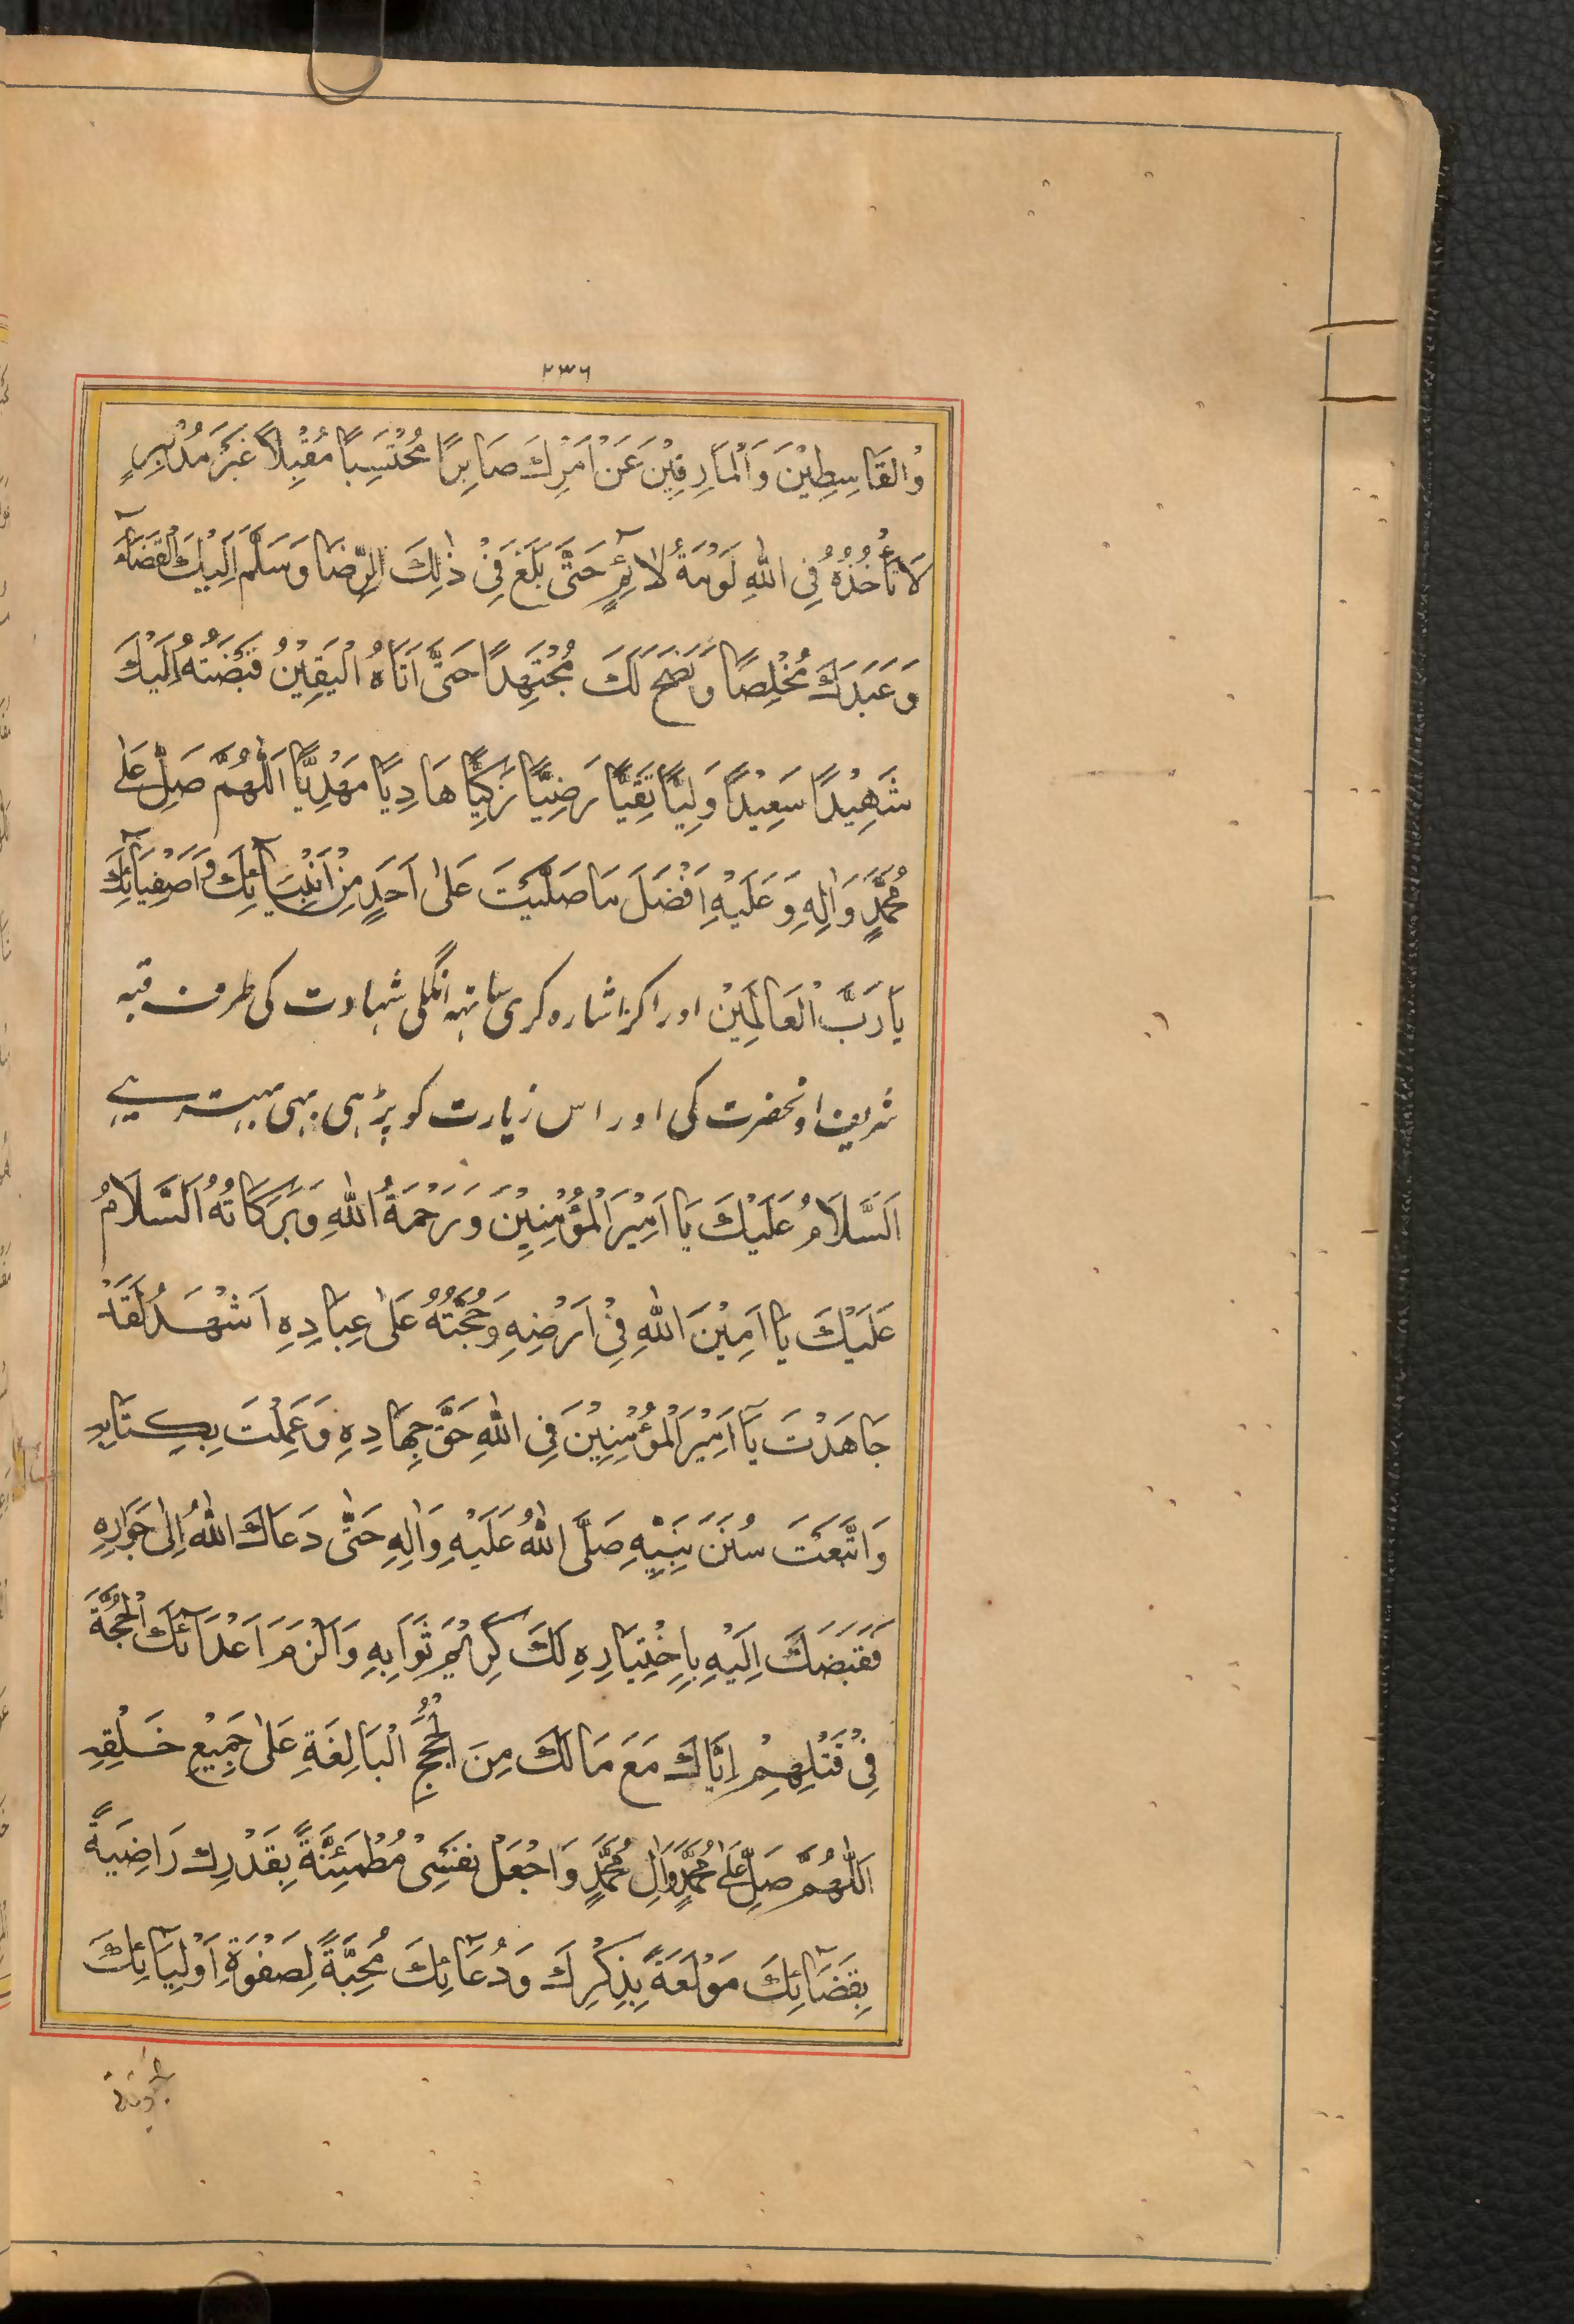 ۲۳۶
وْالقَاسِطِيْنَ وَالْمَارِقِيْنَ عَنْ اَمْرِكَ صَابِرًا مُحْتَسِبًا مُقْبِلًا غَيْرَ مُدْبِرٍ
لَا تَأْخُذُهُ فِى اللهِ لَوْمَةُ لَائِمٍ حَتَّى بَلَغَ فِىْ ذٰلِكَ الرِّضَا وَسَلَّمَ اِلَيْكَ الْقَضَآءَ
وَعَبَدَكَ مُخْلِصًا وَنَصَحَ لَكَ مُجْتَهِدًا حَتَّى اَتَاهُ الْيَقِيْنُ فَقَبَضْتَهُ اِلَيْكَ
شَهِيْدًا سَعِيْدًا وَلِيًّا تَقِيًّا رَضِيًّا زَكِيًّا هَادِيًا مَهْدِيًّا اَللّٰهُمَّ صَلِّ عَلٰى
مُحَمَّدٍ وَاٰلِهِ وَعَلَيْهِ اَفْضَلَ مَا صَلَّيْتَ عَلٰى اَحَدٍ مِنْ اَنْبِيَآئِكَ وَاَصْفِيَآئِكَ
يَا رَبَّ الْعَالَمِيْنَ اور اکر اشارہ کری ساتہہ انگلی شہادت کی طرف قبہ
شریف اونحضرت کی اور اس زیارت کو پڑہی بہی بہتر ہے
اَلسَّلَامُ عَلَيْكَ يَا اَمِيْرَ الْمُؤْمِنِيْنَ وَرَحْمَةُ اللهِ وَبَرَكَاتُهُ اَلسَّلَامُ
عَلَيْكَ يَا اَمِيْنَ اللهِ فِىْ اَرْضِهِ وَحُجَّتُهُ عَلٰى عِبَادِهِ اَشْهَدُ لَقَدْ
جَاهَدْتَ يَآ اَمِيْرَ الْمُؤْمِنِيْنَ فِى اللهِ حَقَّ جِهَادِهِ وَعَمِلْتَ بِكِتَابِهِ
وَاتَّبَعْتَ سُنَنَ نَبِيِّهِ صَلَّى اللهُ عَلَيْهِ وَاٰلِهِ حَتّٰى دَعَاكَ اللهُ اِلٰى جَوَارِهِ
فَقَبَضَكَ اِلَيْهِ بِاِخْتِيَارِهِ لَكَ كَرِيْمَ ثَوَابِهِ وَاَلْزَمَ اَعْدَآئَكَ الْحُجَّةَ
فِىْ قَتْلِهِمْ اِيَّاكَ مَعَ مَا لَكَ مِنَ الْحُجَجِ الْبَالِغَةِ عَلٰى جَمِيْعِ خَلْقِهِ
اَللّٰهُمَّ صَلِّ عَلٰى مُحَمَّدٍ وَاٰلِ مُحَمَّدٍ وَاجْعَلْ نَفْسِىْ مُطْمَئِنَّةً بِقَدْرِكَ رَاضِيَةً
بِقَضَآئِكَ مَوْلَعَةً بِذِكْرِكَ وَدُعَآئِكَ مُحِبَّةً لِصَفْوَةِ اَوْلِيَآئِكَ